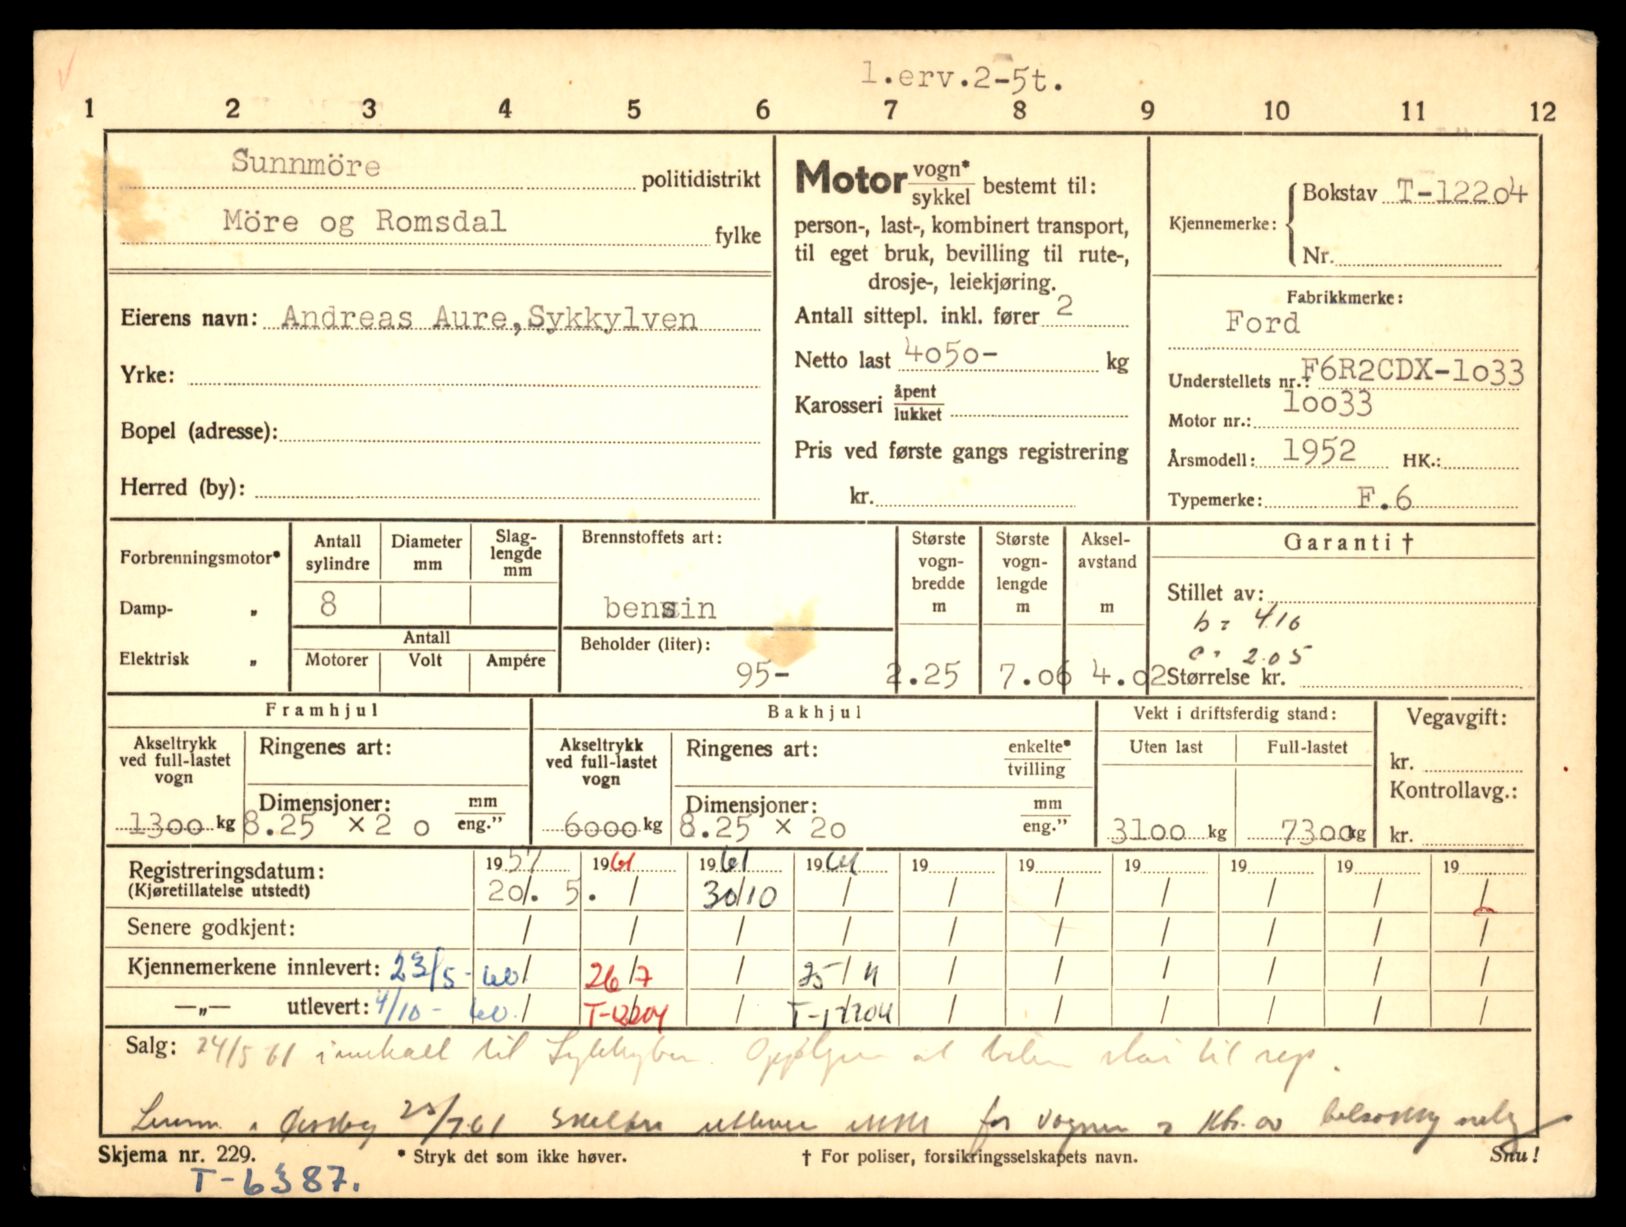 1.erv.2-5t.
1 2 3 4 5 6 7 8 9 10 11 12
Sunnmöre politidistrikt
Möre og Romsdal fylke
Eierens navn: Andreas Aure, Sykkylven
Yrke:
Bopel (adresse):
Herred (by):
Motor vogn* sykkel bestemt til:
person-, last-, kombinert transport,
til eget bruk, bevilling til rute-,
drosje-, leiekjøring.
Antall sittepl. inkl. fører 2
Netto last 4050- kg
Karosseri åpent lukket
Pris ved første gangs registrering
kr.
Kjennemerke: Bokstav T-12204
Nr.
Fabrikkmerke:
Ford
Understellets nr.: F6R2CDX-1033
Motor nr.: 10033
Årsmodell: 1952 HK.:
Typemerke: F.6
Forbrenningsmotor*
Damp- „
Elektrisk „
Antall sylindre
Diameter mm
Slag-lengde mm
8
Antall
Motorer Volt Ampére
Brennstoffets art:
bensin
Beholder (liter):
95-
Største vogn-bredde m
2.25
Største vogn-lengde m
7.06
Aksel-avstand m
4.02
Garanti †
Stillet av:
b = 4.10
c = 2.05
Størrelse kr.
Framhjul
Akseltrykk ved full-lastet vogn
1300 kg
Ringenes art:
Dimensjoner: mm eng."
8.25 × 20
Bakhjul
Akseltrykk ved full-lastet vogn
6000 kg
Ringenes art: enkelte* tvilling
Dimensjoner: mm eng."
8.25 × 20
Vekt i driftsferdig stand:
Uten last Full-lastet
3100 kg 7300 kg
Vegavgift:
kr.
Kontrollavg.:
kr.
Registreringsdatum: 1957 1961 1961 1964 19 19 19 19 19 19
(Kjøretillatelse utstedt) 20. 5. / 30/10 / / / / / / /
Senere godkjent: / / / / / / / / / /
Kjennemerkene innlevert: 23/5-60 / 26/7 / 25/4 / / / / / /
—„— utlevert: 4/10-60. / T-12204 / T-12204 / / / / / /
Salg: 24/5 61 til Sykkylven. at bilen står til rep.
23/7 61 for vognen
Skjema nr. 229. * Stryk det som ikke høver. † For poliser, forsikringsselskapets navn. Snu!
T-6387.